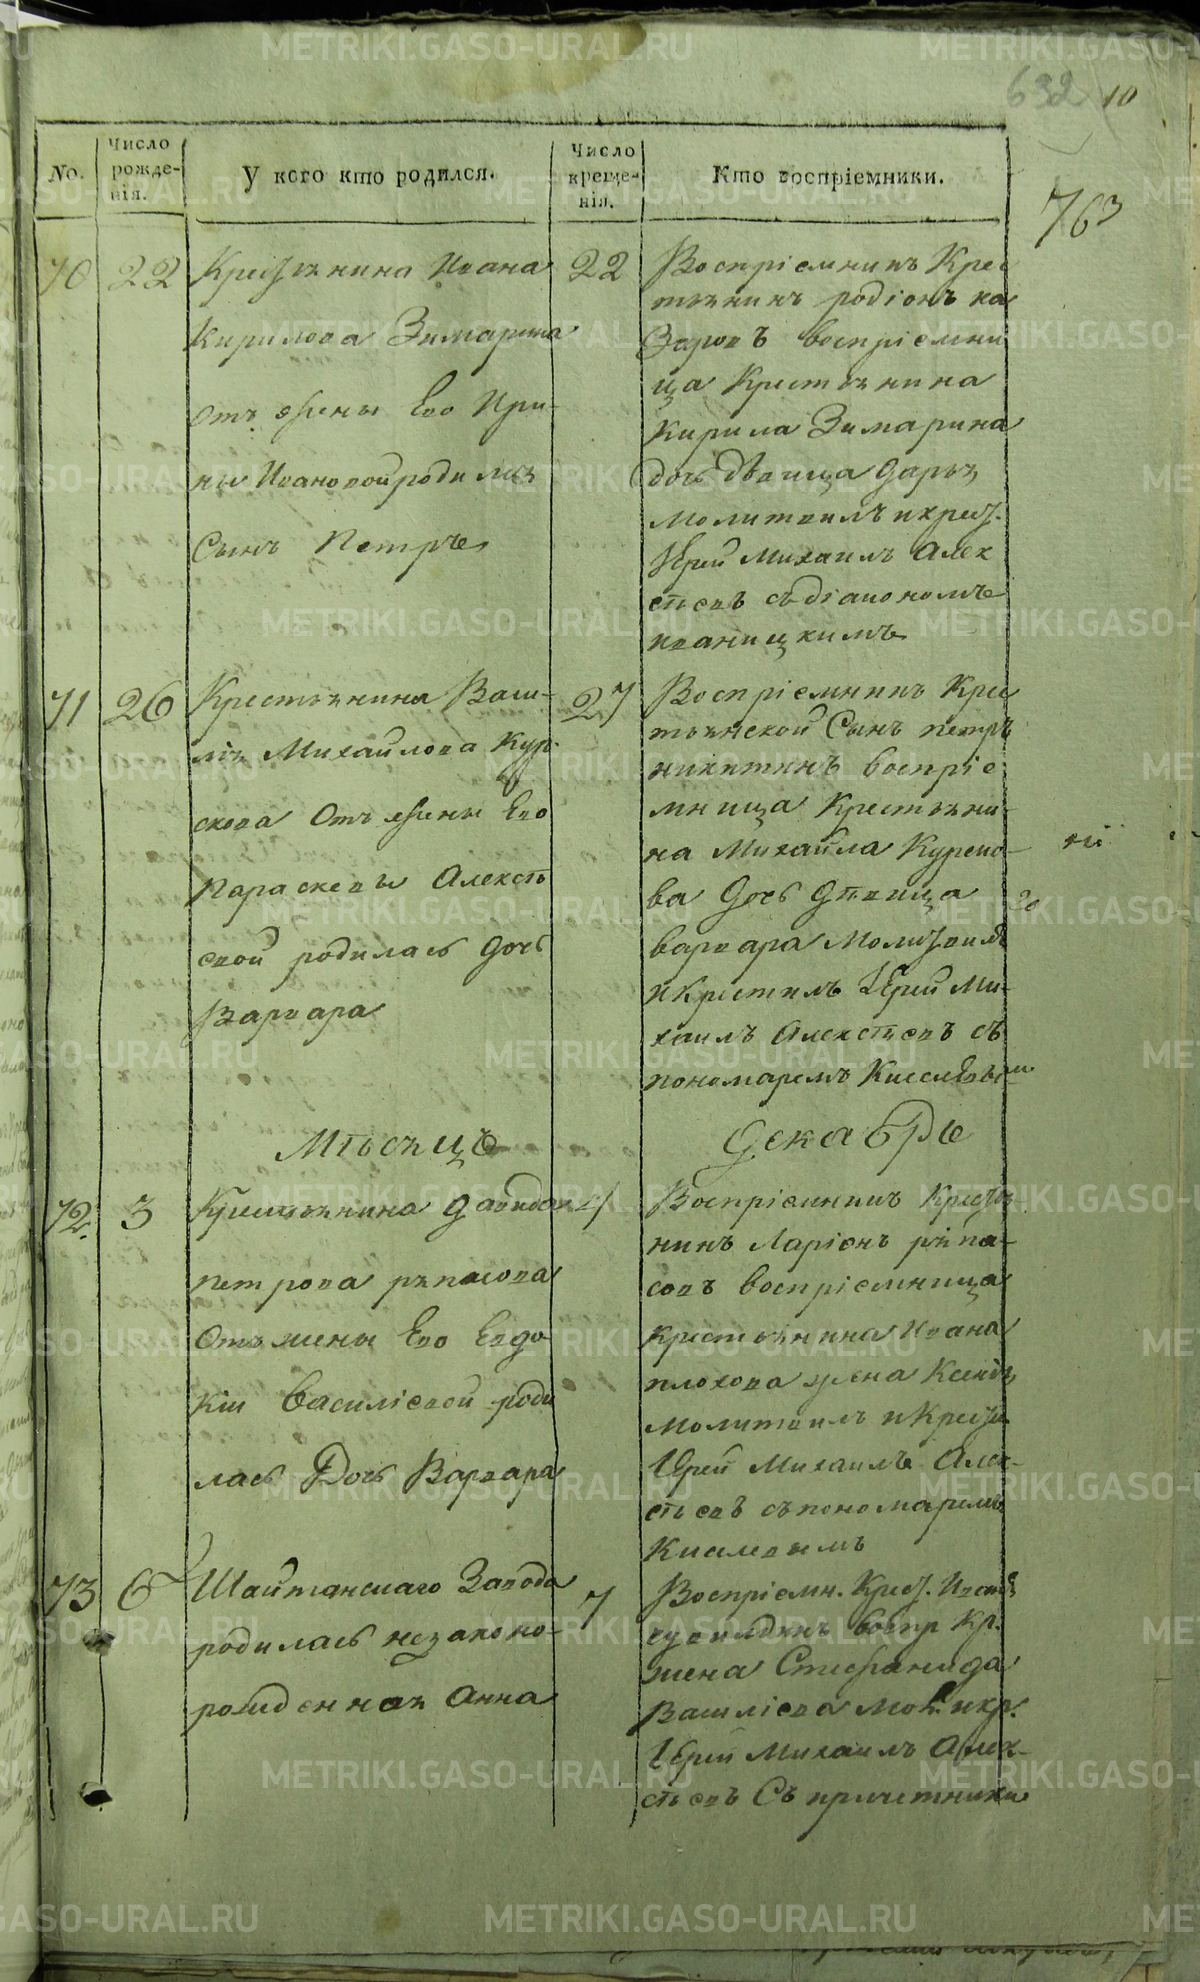 632 10
763
No.
Число рожденія.
У кого кто родился.
Число крещенія.
Кто воспріемники.
70
22
Крестьянина Ивана
Кирилова Зимарина
отъ жены Его Ири-
ны Ивановой родился
Сынъ Петръ
22
Воспріемникъ Крес
тьянинъ родіонъ на
Заровъ воспріемни
ца Крестьянина
Кирила Зимарина
дочь дѣвица Дарья
Молитвилъ и крест.
Іерей Михаилъ Алек
сѣевъ съ діакономъ
иваницкимъ
71
26
Крестьянина Васи-
лія Михайлова Кур-
скова Отъ жены Его
Параскевы Алексѣ
евой родилась дочь
Варвара
27
Воспріемникъ Крес
тьянской Сынъ петръ
никитинъ воспріе
мница Крестьяни-
на Михайла Курско-
ва Дочь Дѣвица
варвара Молитвилъ
и Крестилъ Іерей Ми-
хаилъ Алексѣевъ съ
пономаремъ Киселевым
Мѣсяцъ
Декабрь
72.
3
Крестьянина Давида
петрова ряпасова
Отъ жены Его Евдо
кіи Василіевой роди
лась Дочь Варвара
4
Воспріемникъ Крестья
нинъ Ларіонъ ряпа-
совъ воспріемница
крестьянина Ивана
плохова жена Ксенія
молитвилъ и Крести
Іерей Михаилъ Алек-
сѣевъ съ пономаремъ
Киселевымъ
73
6
Шайтанскаго Завода
родилась незаконо-
рожденная Анна
7
Воспріемн. Крест.
воспр Кр.
жена Стефанида
Василіева Мол. и кр.
Іерей Михаилъ Алек-
сѣевъ Съ причетники